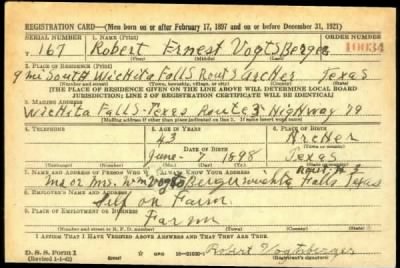 REGISTRATION CARD—(Men born on or after February 17, 1897 and on or before December 31, 1921)
SERIAL NUMBER 1. NAME (Print) ORDER NUMBER
T 167 Robert Ernest VogtsBerger
(First) (Middle) (Last)
2. PLACE OF RESIDENCE (Print)
9 mi South Wichita Falls Rout 3 Archer Texas
(Number and street) (Town, township, village, or city) (County) (State)
[THE PLACE OF RESIDENCE GIVEN ON THE LINE ABOVE WILL DETERMINE LOCAL BOARD
JURISDICTION; LINE 2 OF REGISTRATION CERTIFICATE WILL BE IDENTICAL]
3. MAILING ADDRESS
Wichita Falls-Texas Route 3 Highway 79
[Mailing address if other than place indicated on line 2. If same insert word same]
4. TELEPHONE 5. AGE IN YEARS 6. PLACE OF BIRTH
43 Archer
DATE OF BIRTH (Town or county)
June-7 1898 Texas
(Exchange) (Number) (Mo.) (Day) (Yr.) (State or country)
7. NAME AND ADDRESS OF PERSON WHO WILL ALWAYS KNOW YOUR ADDRESS
mr or mrs. Wm Vogts Berger Wichita Falls Texas
8. EMPLOYER'S NAME AND ADDRESS
Self on Farm
9. PLACE OF EMPLOYMENT OR BUSINESS
Farm
(Number and street or R. F. D. number) (Town) (County) (State)
I AFFIRM THAT I HAVE VERIFIED ABOVE ANSWERS AND THAT THEY ARE TRUE.
D. S. S. Form 1
(Revised 1-1-42) GPO Robert Vogtsberger
(Registrant's signature)